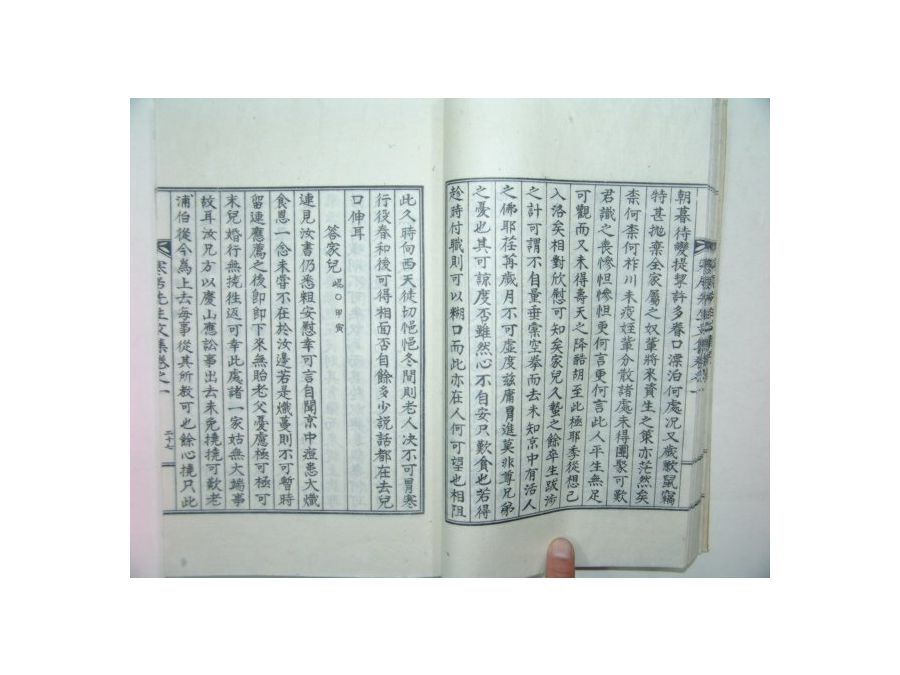 朝暮待變提挈許多眷口漂泊何處況又歲歉鼠竊
特甚拋棄全家屬之奴輩將來資生之策亦茫然矣
柰何柰何柞川未疫姪輩分散諸處未得團聚可歎
君識之喪慘怛慘怛更何言更何言此人平生無足
可觀而又未得壽天之降酷胡至此極耶季從想已
入洛矣相對欣慰可知矣家兒久蟄之餘卒生跋涉
之計可謂不自量垂橐空拳而去未知京中有活人
之佛耶荏苒歲月不可虛度玆庸冒進莫非尊兄弟
之憂也其可諒度否雖然心不自安只歎貪也若得
趁時付職則可以糊口而此亦在人何可望也相阻
此久時向西天徒切悒悒冬間則老人决不可冒寒
行役春和後可得相面否自餘多少說話都在去兒
口伸耳
答家兒 ○甲寅
連見汝書仍悉粗安慰幸可言自聞京中痘患大熾
食息一念未嘗不在於汝邊若是熾蔓則不可暫時
留連應薦之後卽卽下來無貽老父憂慮極可極可
末兒婚行無撓徃返可幸此處諸一家姑無大端事
故耳汝兄方以慶山應訟事出去未免撓撓可歎老
浦伯從今爲上去每事從其所敎可也餘心撓只此
先生文集卷之一
二十七